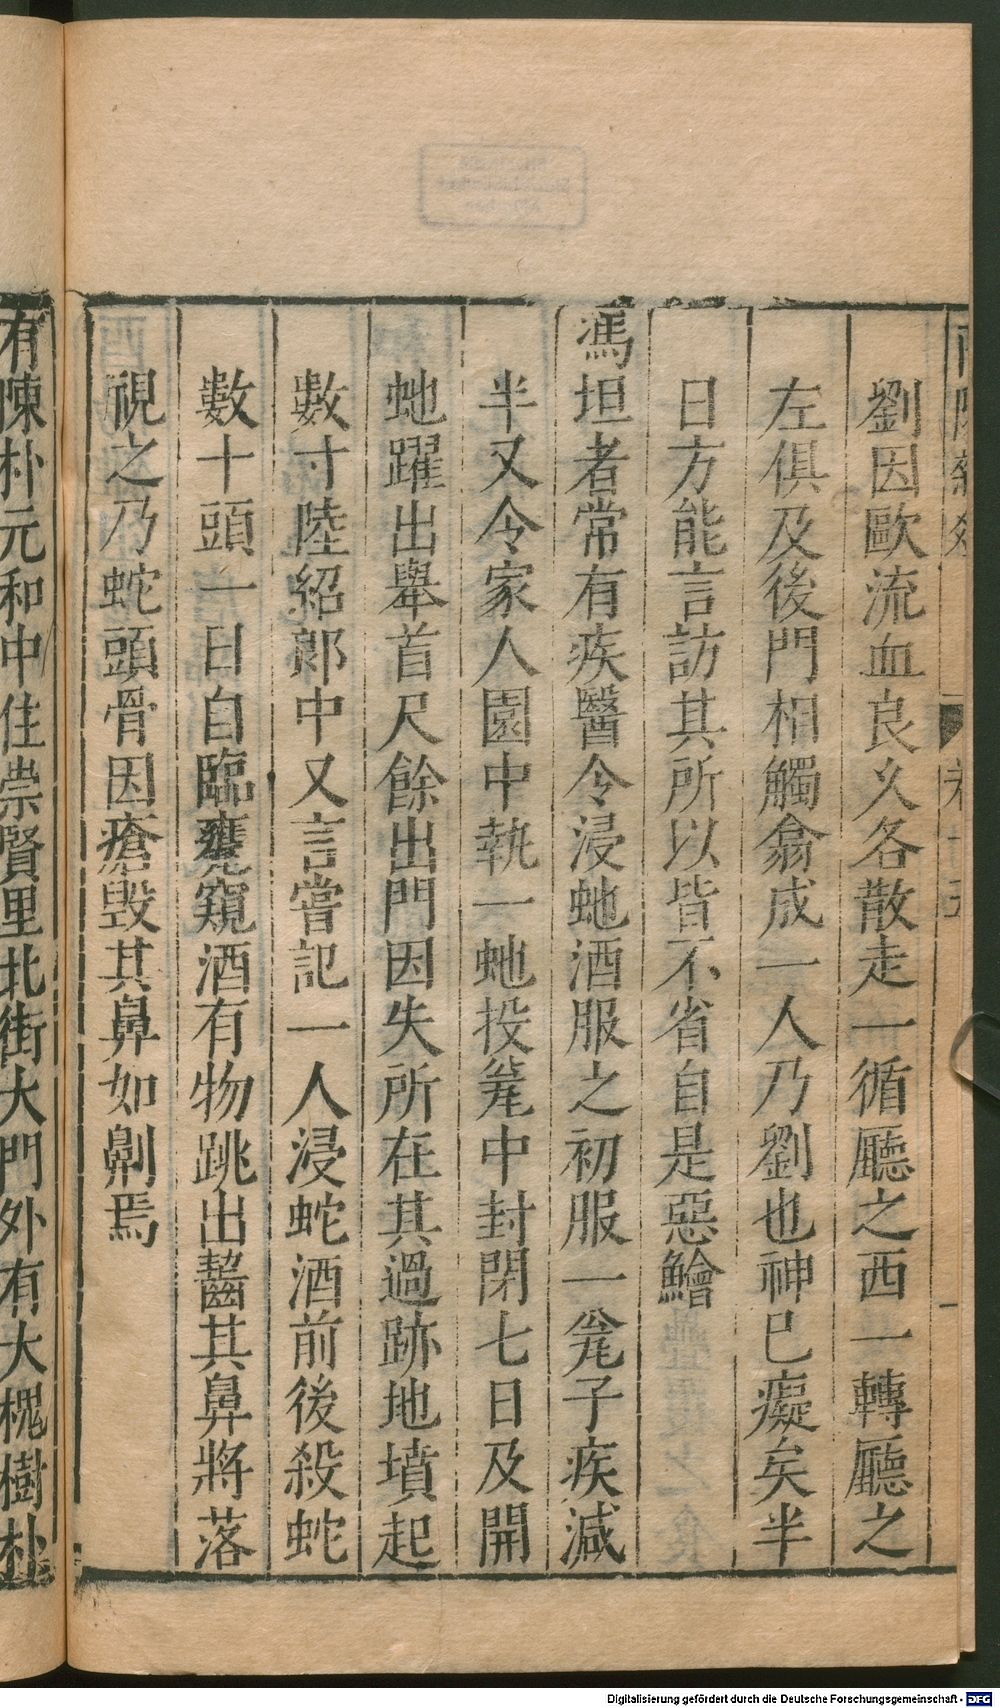 劉因歐流血良久各散走一循廳之西一轉廳之
左俱及後門相觸翕成一人乃劉也神已癡矣半
日方能言訪其所以皆不省自是惡鱠
馮坦者常有疾醫令浸虵酒服之初服一甕子疾減
半又令家人園中執一虵投甕中封閉七日及開
虵躍出舉首尺餘出門因失所在其過跡地墳起
數寸陸紹郞中又言嘗記一人浸蛇酒前後殺蛇
數十頭一日自臨甕窺酒有物跳出齧其鼻將落
視之乃蛇頭骨因瘡毁其鼻如劓焉
有陳朴元和中住崇賢里北街大門外有大槐樹朴
Digitalisierung gefördert durch die Deutsche Forschungsgemeinschaft - DFG